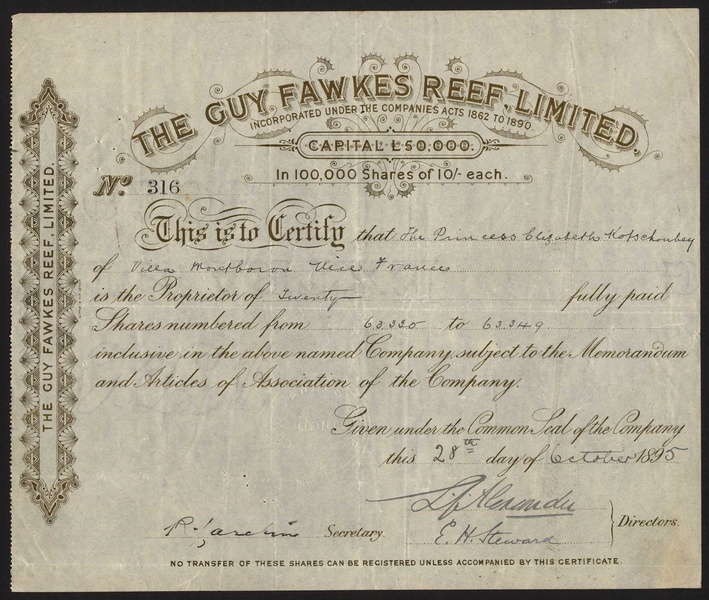 THE GUY FAWKES REEF, LIMITED.
INCORPORATED UNDER THE COMPANIES ACTS 1862 TO 1890.
CAPITAL £50,000.
In 100,000 Shares of 10/- each.
No 316
This is to Certify that The Princess Elizabeth Kotschoubey
of Villa Montboron Nice France
is the Proprietor of Twenty fully paid
Shares numbered from 63.330 to 63.349
inclusive in the above named Company, subject to the Memorandum
and Articles of Association of the Company.
Given under the Common Seal of the Company
this 28th day of October 1895
Secretary
E. H. Steward
Directors.
NO TRANSFER OF THESE SHARES CAN BE REGISTERED UNLESS ACCOMPANIED BY THIS CERTIFICATE.
THE GUY FAWKES REEF, LIMITED.